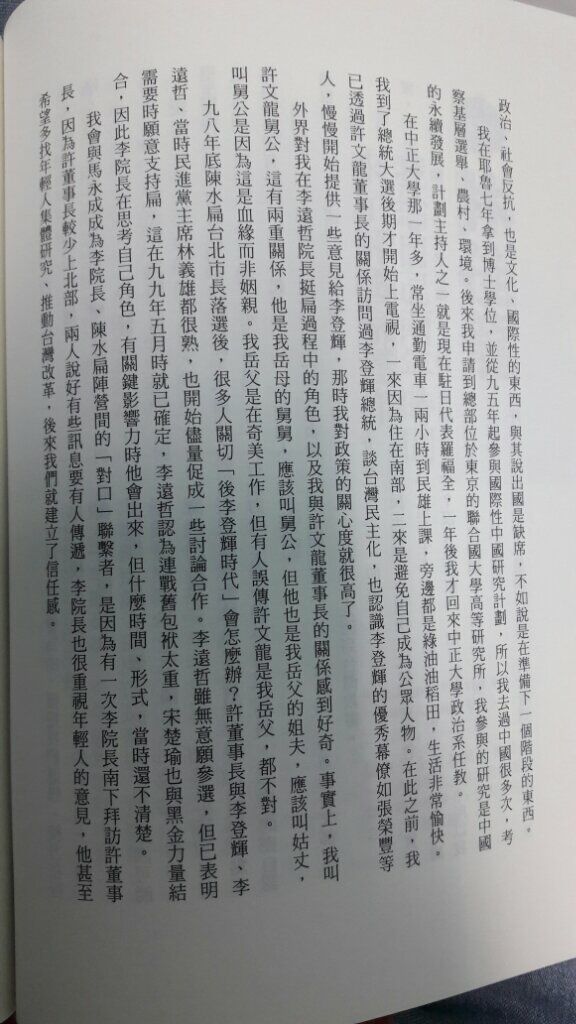 政治、社會反抗，也是文化、國際性的東西，與其說出國是缺席，不如說是在準備下一個階段的東西。
我在耶魯七年拿到博士學位，並從九五年起參與國際性中國研究計劃，所以我去過中國很多次，考
察基層選舉、農村、環境。後來我申請到總部位於東京的聯合國大學高等研究所，我參與的研究是中國
的永續發展，計劃主持人之一就是現在駐日代表羅福全，一年後我才回來中正大學政治系任教。
在中正大學那一年多，常坐通勤電車一兩小時到民雄上課，旁邊都是綠油油稻田，生活非常愉快。
我到了總統大選後期才開始上電視，一來因為住在南部，二來是避免自己成為公眾人物。在此之前，我
已透過許文龍董事長的關係訪問過李登輝總統，談台灣民主化，也認識李登輝的優秀幕僚如張榮豐等
人，慢慢開始提供一些意見給李登輝，那時我對政策的關心度就很高了。
外界對我在李遠哲院長挺扁過程中的角色，以及我與許文龍董事長的關係感到好奇。事實上，我叫
許文龍舅公，這有兩重關係，他是我岳母的舅舅，應該叫舅公，但他也是我岳父的姐夫，應該叫姑丈，
叫舅公是因為這是血緣而非姻親。我岳父是在奇美工作，但有人誤傳許文龍是我岳父，都不對。
九八年底陳水扁台北市長落選後，很多人關切「後李登輝時代」會怎麼辦？許董事長與李登輝、李
遠哲、當時民進黨主席林義雄都很熟，也開始儘量促成一些討論合作。李遠哲雖無意願參選，但已表明
需要時願意支持扁，這在九九年五月時就已確定，李遠哲認為連戰舊包袱太重，宋楚瑜也與黑金力量結
合，因此李院長在思考自己角色，有關鍵影響力時他會出來，但什麼時間、形式，當時還不清楚。
我會與馬永成成為李院長、陳水扁陣營間的「對口」聯繫者，是因為有一次李院長南下拜訪許董事
長，因為許董事長較少上北部，兩人說好有些訊息要有人傳遞，李院長也很重視年輕人的意見，他甚至
希望多找年輕人集體研究、推動台灣改革，後來我們就建立了信任感。